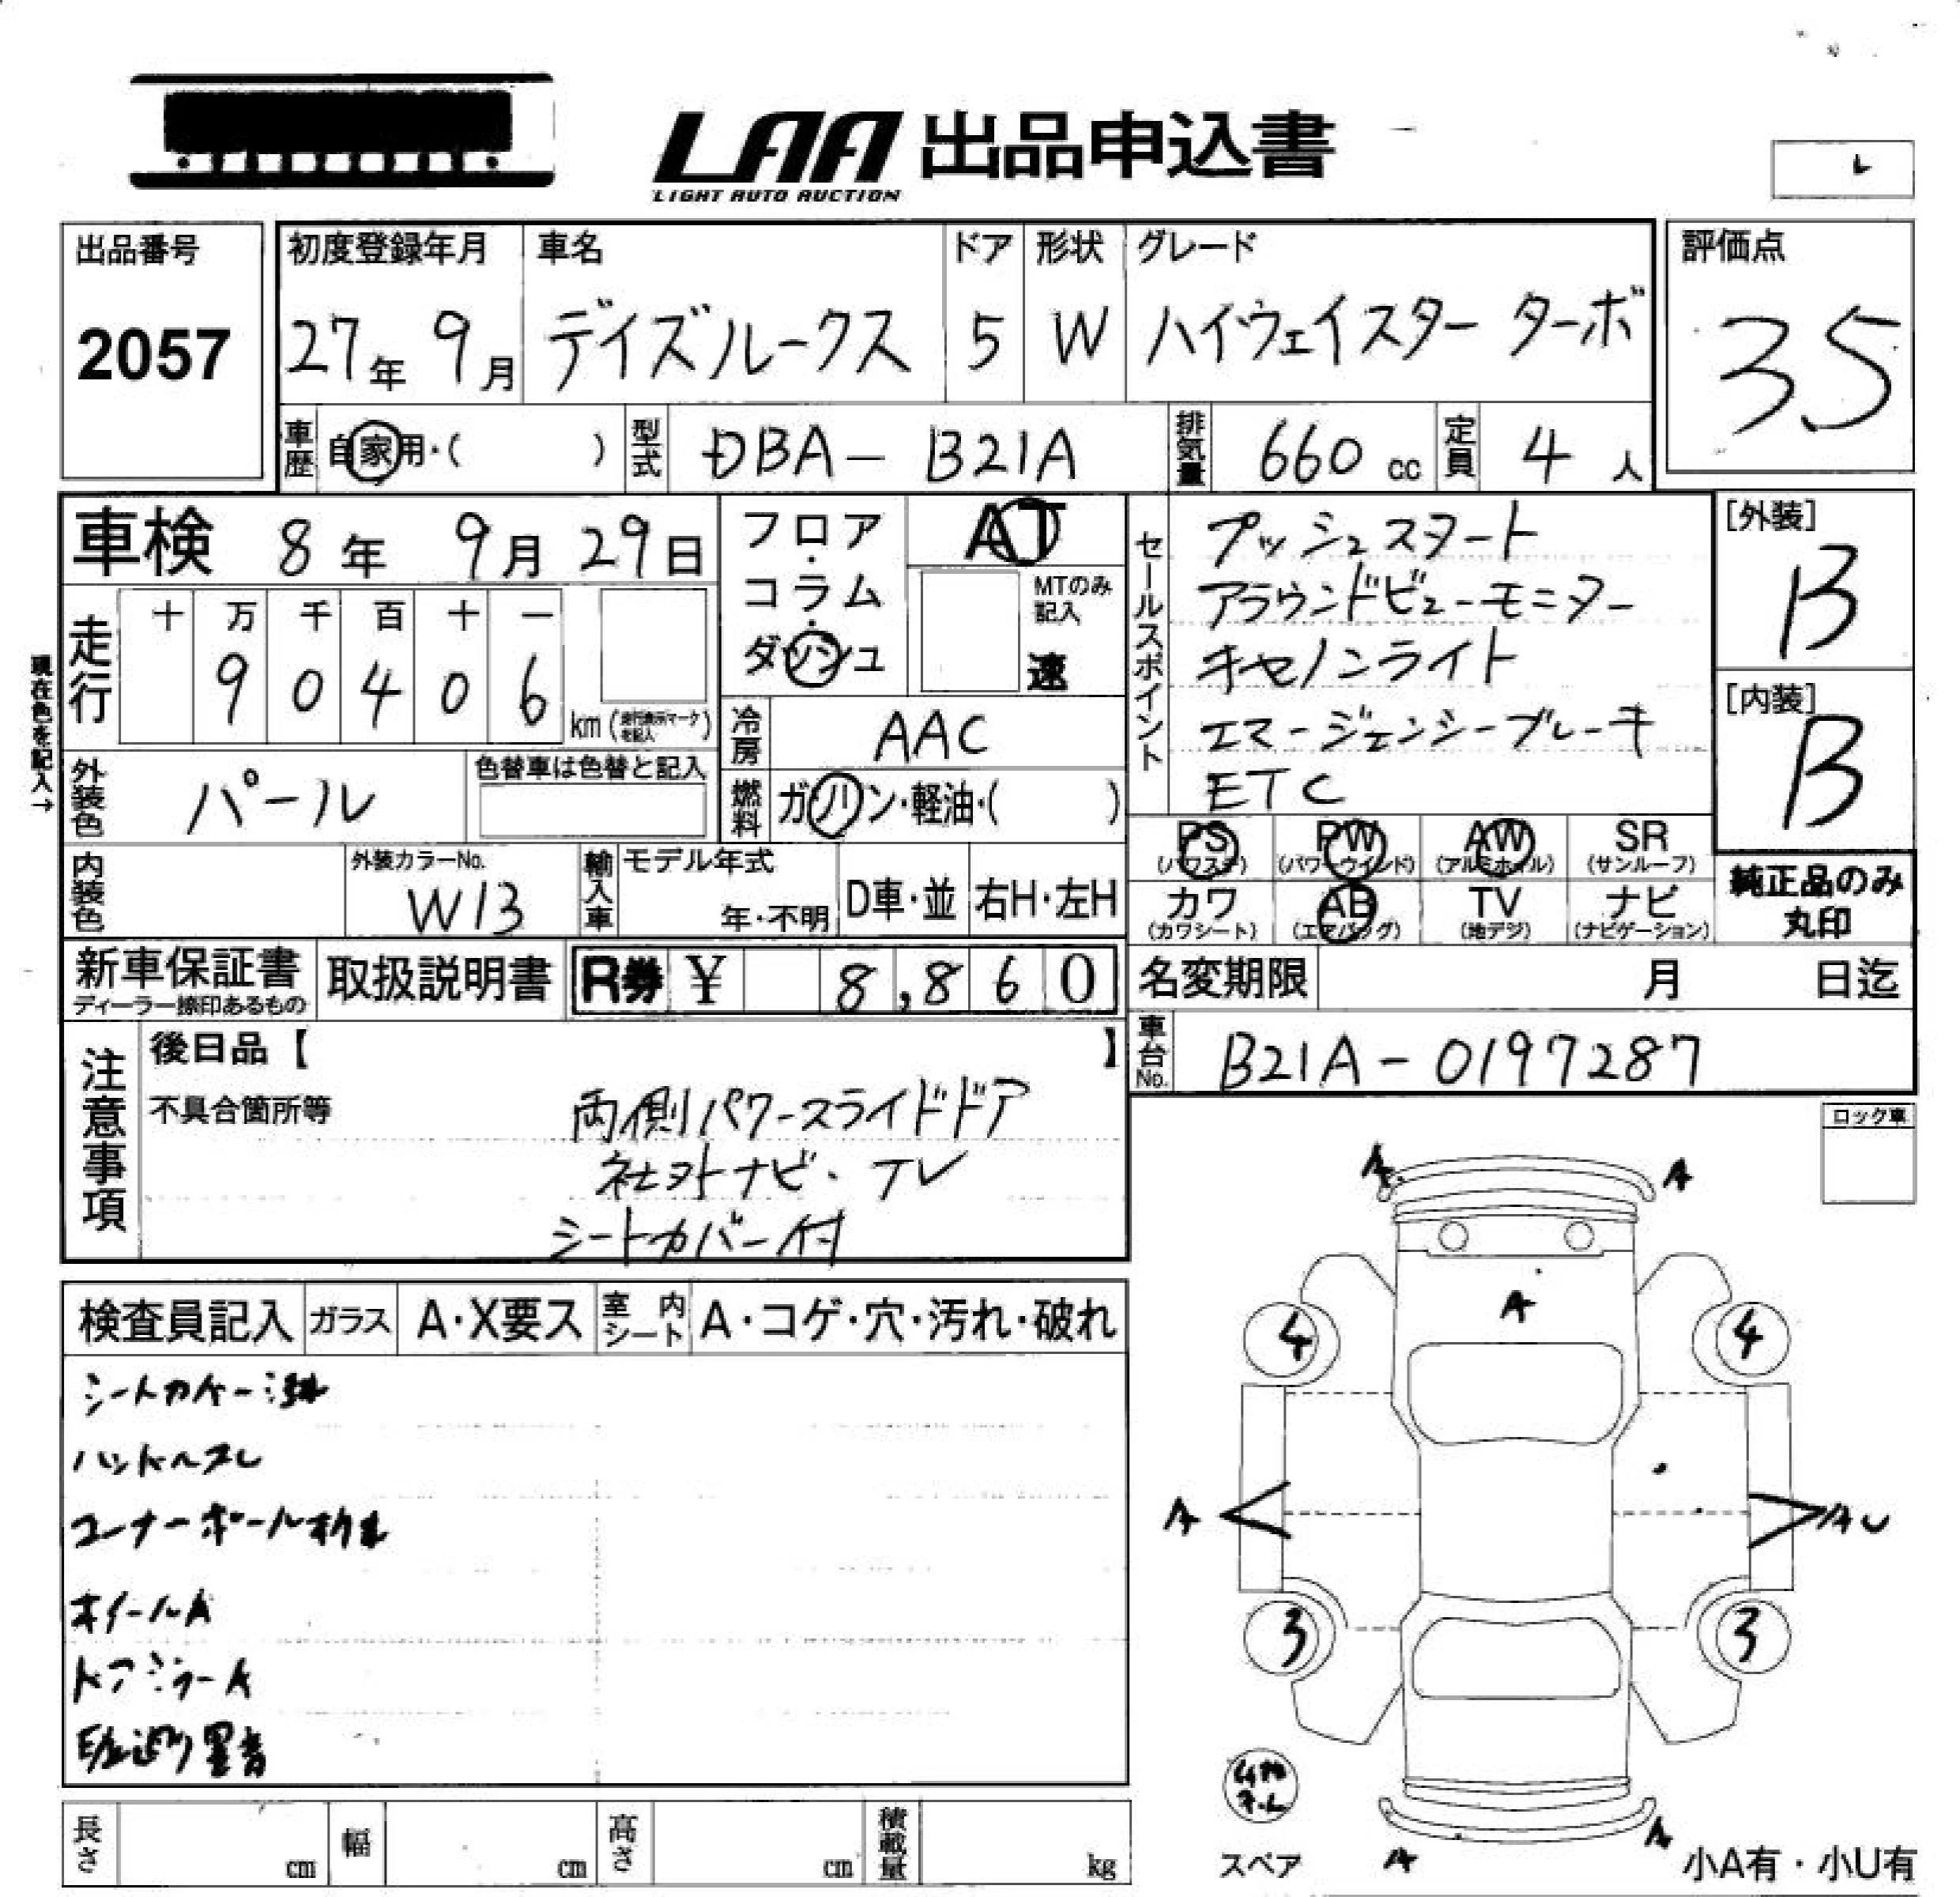 LAA 出品申込書
LIGHT AUTO AUCTION
出品番号
2057
初度登録年月
27年 9月
車名
デイズルークス
ドア
5
形状
W
グレード
ハイウェイスター ターボ
評価点
3.5
車歴 自家用・( )
型式 DBA- B21A
排気量 660 cc
定員 4 人
車検 8年 9月 29日
フロア・コラム・ダッシュ
AT
MTのみ記入
速
現在色を記入→
走行 十 万 千 百 十 一
9 0 4 0 6 km (走行表示マークを記入)
冷房 AAC
外装色 パール
色替車は色替と記入
燃料 ガソリン・軽油・( )
内装色
外装カラーNo.
W13
輸入車 モデル年式
年・不明
D車・並
右H・左H
セールスポイント
プッシュスタート
アラウンドビューモニター
キセノンライト
エマージェンシーブレーキ
ETC
[外装]
B
[内装]
B
PS (パワステ)
PW (パワーウインド)
AW (アルミホイル)
SR (サンルーフ)
カワ (カワシート)
AB (エアバッグ)
TV (地デジ)
ナビ (ナビゲーション)
純正品のみ
丸印
新車保証書
ディーラー捺印あるもの
取扱説明書
R券 ¥ 8,860
名変期限 月 日迄
車台No. B21A-0197287
注意事項
後日品【 】
不具合箇所等
両側パワースライドドア
社外ナビ・TV
シートカバー付
ロック車
検査員記入 ガラス A・X要ス 室内シート A・コゲ・穴・汚れ・破れ
シートカバー汚れ
ハンドルスレ
コーナーポール折れ
ホイールA
ドアミラーA
A
A
A
4
4
A
AU
3
3
スペア
A
A
小A有・小U有
長さ cm
幅 cm
高さ cm
積載量 kg